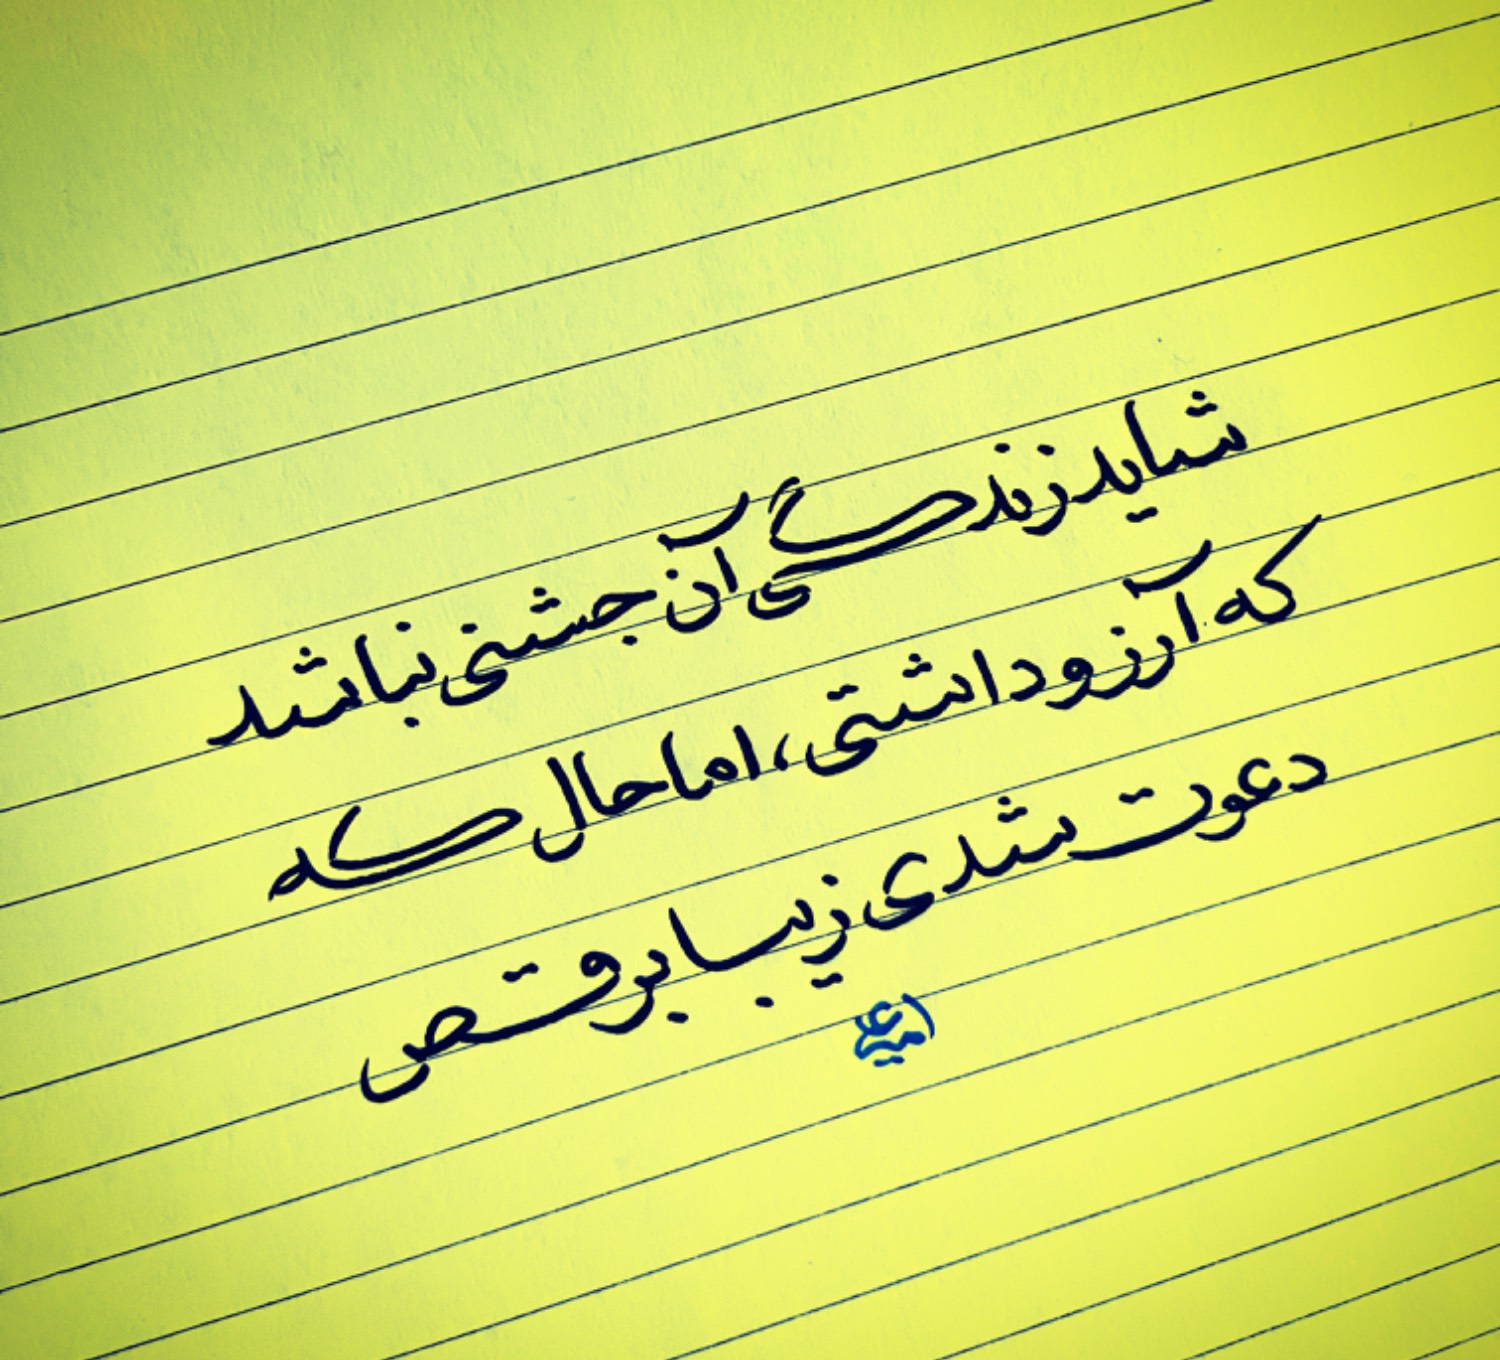 شاید زندگی آن جشنی نباشد
که آرزو داشتی، اما حال که
دعوت شدی زیبا برقص